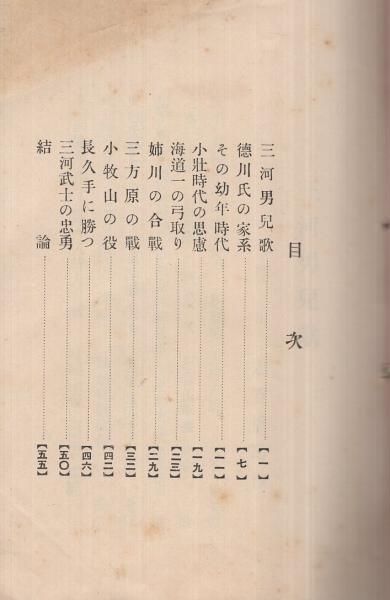 目次
三河男兒歌…………【一】
德川氏の家系…………【七】
その幼年時代…………【一一】
小壯時代の思慮…………【一九】
海道一の弓取り…………【二三】
姉川の合戰…………【二九】
三方原の戰…………【三二】
小牧山の役…………【四二】
長久手に勝つ…………【四六】
三河武士の忠勇…………【五〇】
結論…………【五五】